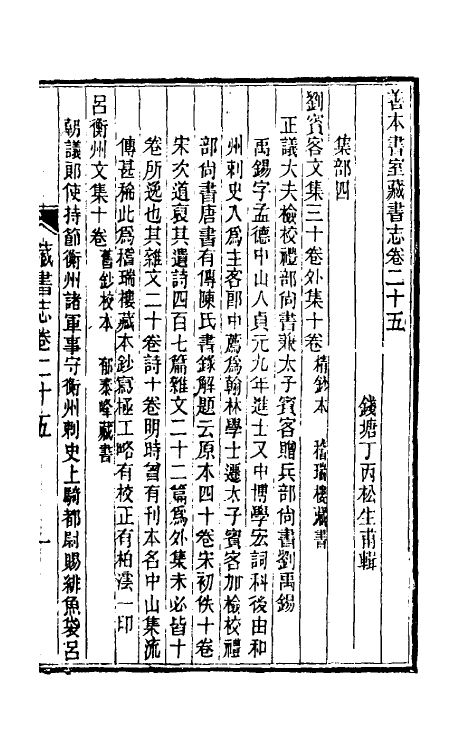 善本書室藏書志卷二十五
錢塘丁丙松生甫輯
集部四
劉賓客文集三十卷外集十卷 精鈔本 稽瑞樓藏書
正議大夫檢校禮部尚書兼太子賓客贈兵部尚書劉禹錫
禹錫字孟德中山人貞元九年進士又中博學宏詞科後由和
州刺史入為主客郎中薦為翰林學士遷太子賓客加檢校禮
部尚書唐書有傳陳氏書錄解題云原本四十卷宋初佚十卷
宋次道裒其遺詩四百七篇雜文二十二篇為外集未必皆十
卷所逸也其雜文二十卷詩十卷明時曾有刊本名中山集流
傳甚稀此為稽瑞樓藏本鈔寫極工略有校正有柏漊一印
呂衡州文集十卷 舊鈔校本 郁泰峰藏書
朝議郎使持節衡州諸軍事守衡州刺史上騎都尉賜緋魚袋呂
藏書志卷二十五 一